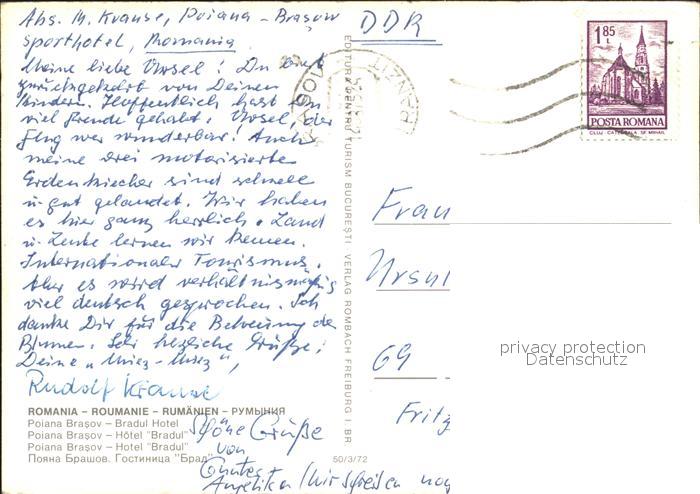 Abs. M. Krause, Poiana – Brașov
Sporthotel, Romania.
Meine liebe Ursel! Du bist
zurückgekehrt von Deinen
Kindern. Hoffentlich hast Du
viel Freude gehabt. Ursel, der
Flug war wunderbar! Auch
meine drei motorisierte
Erdenkriecher sind schnell
u. gut gelandet. Wir haben
es hier ganz herrlich. Land
u. Leute lernen wir kennen.
Internationaler Tourismus.
Aber es wird verhältnismäßig
viel deutsch gesprochen. Ich
danke Dir für die Betreuung der
Blumen. Sehr herzliche Grüße!
Deine „Miez-Miez",
Rudolf Krause
ROMANIA – ROUMANIE – RUMÄNIEN – РУМЫНИЯ
Poiana Brașov – Bradul Hotel
Poiana Brașov – Hôtel "Bradul"
Poiana Brașov – Hotel "Bradul"
Пояна Брашов. Гостиница "Брад"
50/3/72
Schöne Grüße
von
Günter +
Angelika (wir schreiben noch
EDITURA PENTRU TURISM BUCUREȘTI VERLAG ROMBACH FREIBURG I BR
DDR
BRAȘOV
TRANZIT
1,85 L
POSTA ROMANA
CLUJ - CATEDRALA SF. MIHAIL
Frau
Ursul
69
Fritz
privacy protection
Datenschutz